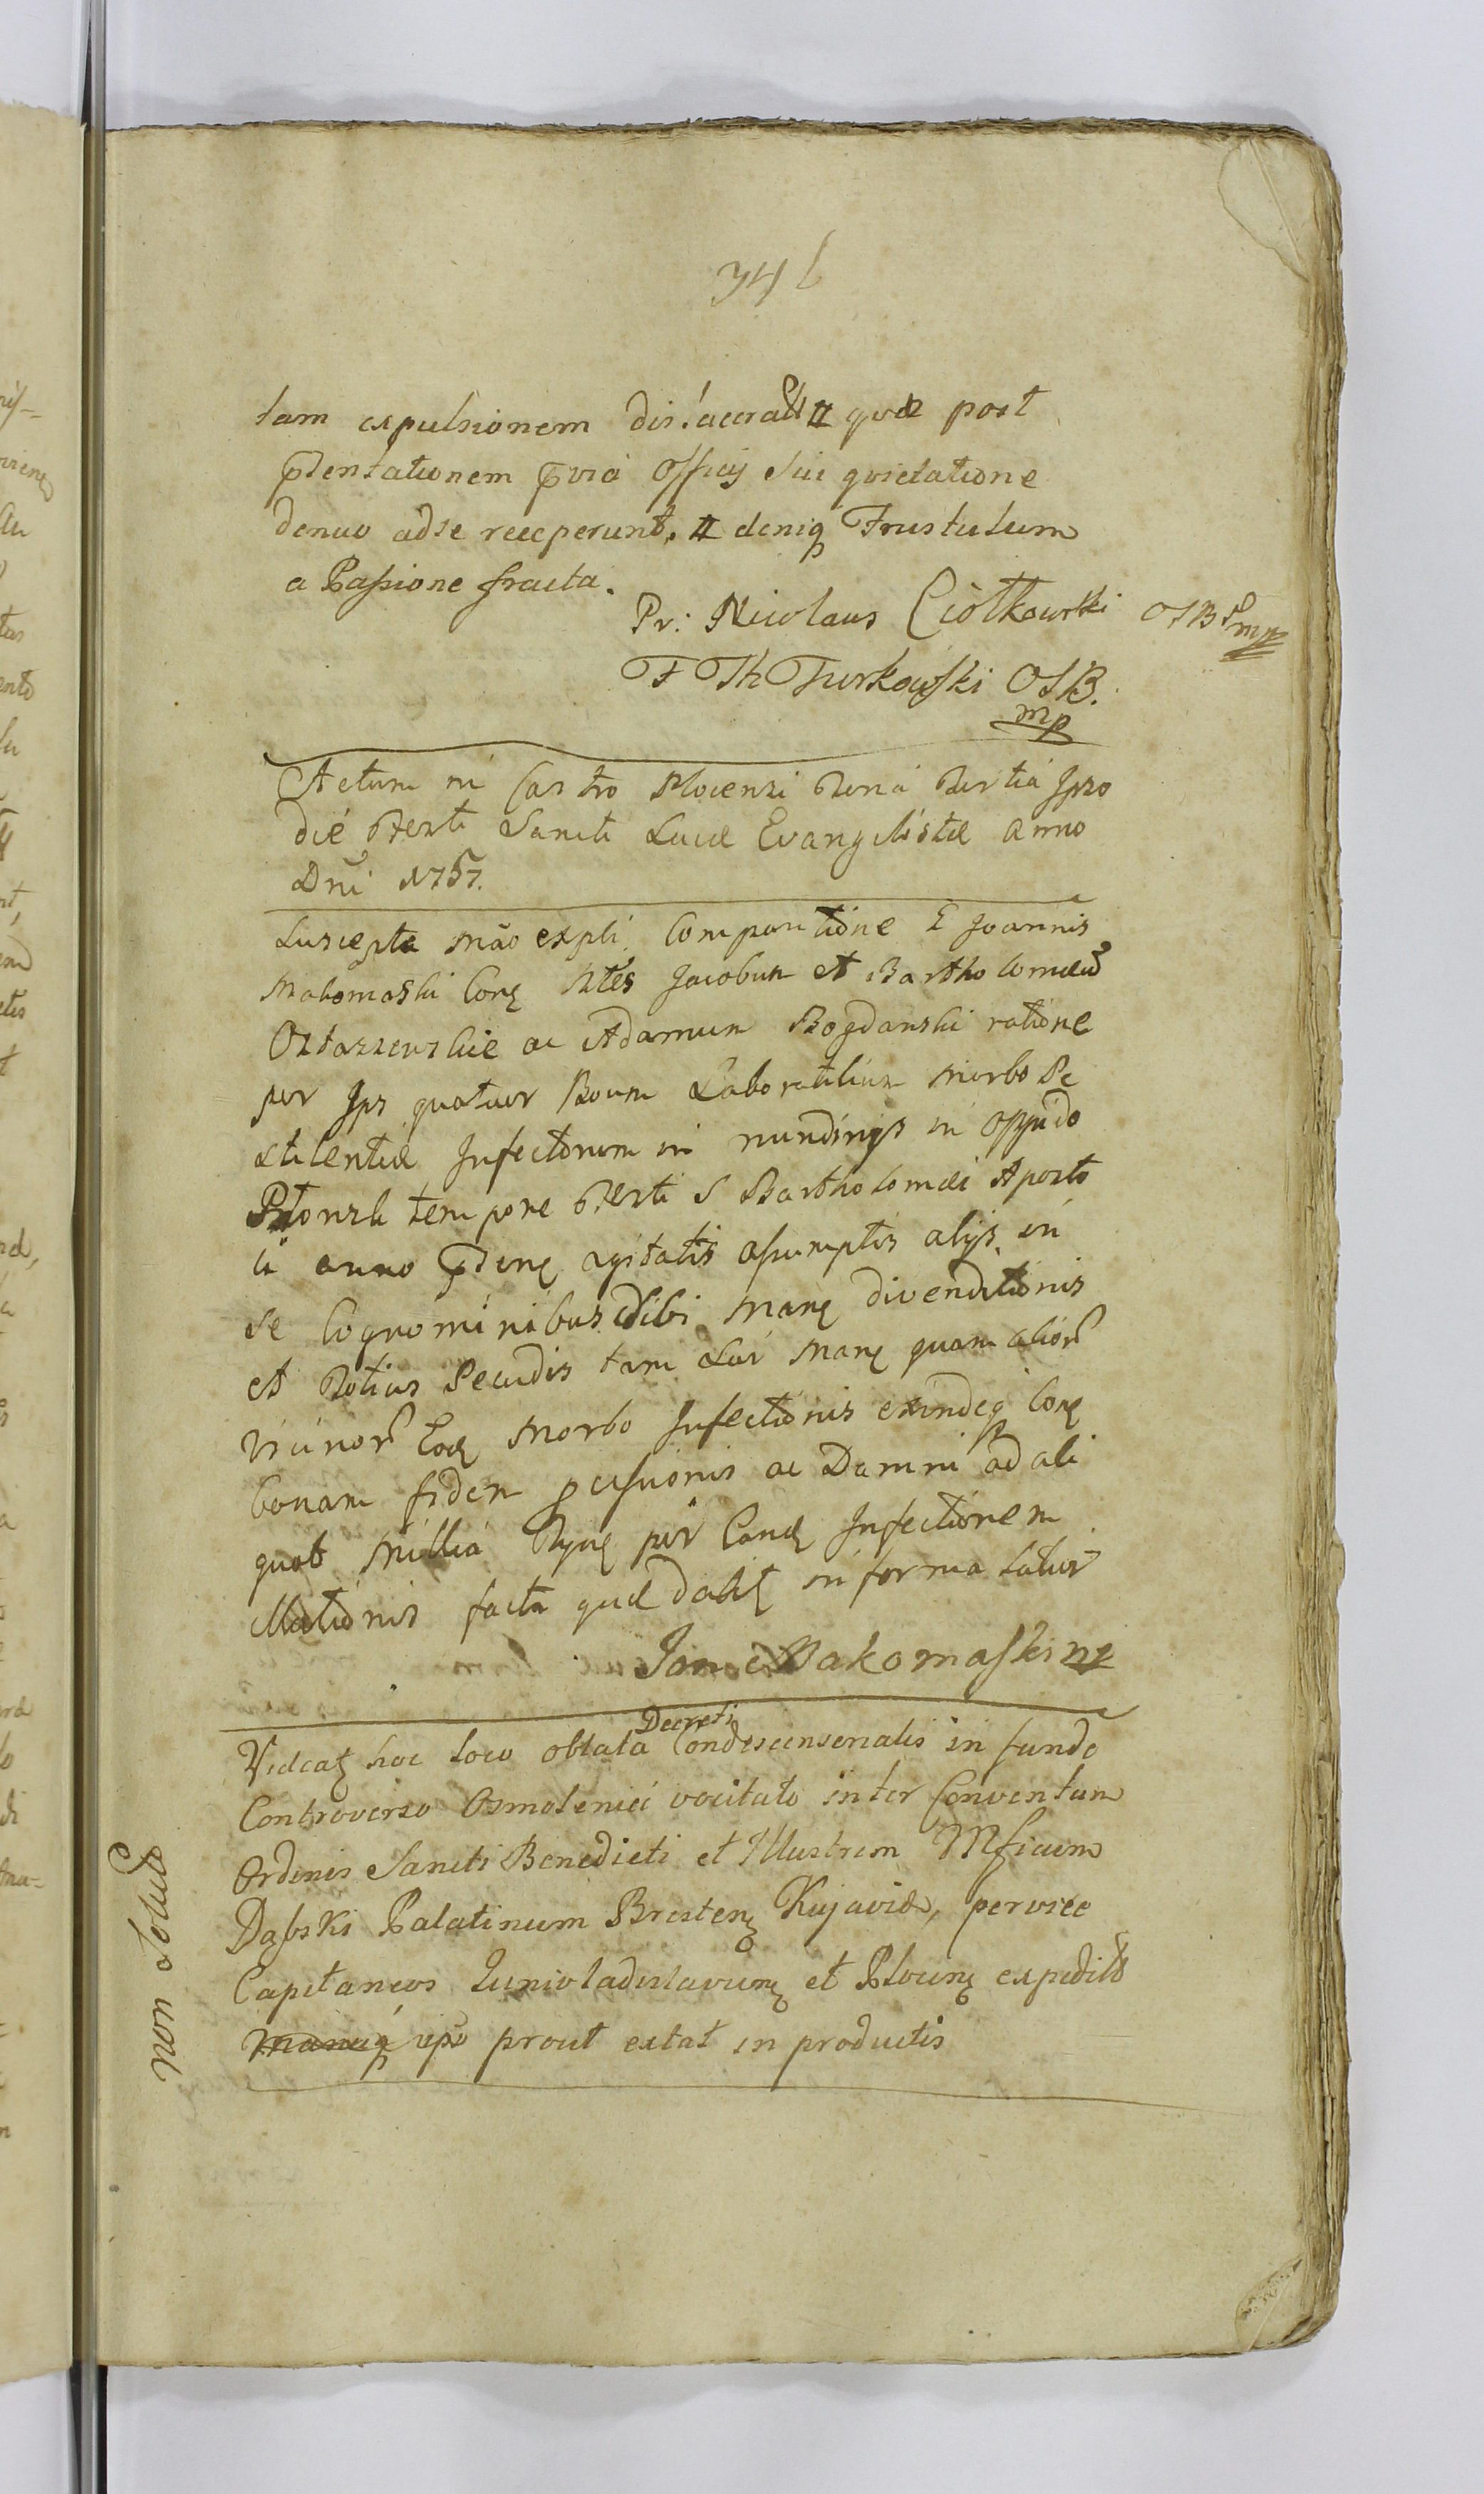 tam expulsionem dislacerat # quæ post
ꝑdentationem ꝑvia Officij sui quietatione
denuo adse receperunt, # deniqꝫ Frustulum
a Passione fracta.
Pr: Nicolaus Ciołkowski OSB mp
F Th Turkowski OSB.
mp
Actum in Castro Plocensi Feria Tertia Ipso
die Festi Sancti Lucæ Evangelistæ Anno
Dni 1757.
Suscepta mão expli Comparitione G Joannis
Makomaski Coræ Ntes Jacobum et Bartholomæũ
Ostaszewskie ac Adamum Bogdanski ratione
per Ips quatuor Boum Laboratilium morbo Pe
stilentiæ Infectorum in nundinijs in Oppido
Płonsk tempore Festi S Bartholomæi Aposto
li anno agitatis assumptis alijs in
se Cognominibus sibi Mane divenditionis
et Totius Pecudis tam Sui Mane quam alior
vicinor Eod Morbo Infectionis exindeqꝫ Cone
bonam fidem ac Damni ad ali
quot Millia per Eand Infectionem
illationis facta quæ in forma
Jan Makomaski mp
Videat hoc loco oblata Decreti Condescensorialis in fundo
Controverso Osmolenici vocitato inter Conventum
Ordinis Sancti Benedicti et Illustrem Mficum
Dąbski Palatinum Bresten Kujaviæ, per vice
Capitaneos Juniwladislavien et Plocen expedit
prout extat in productis
non Solut